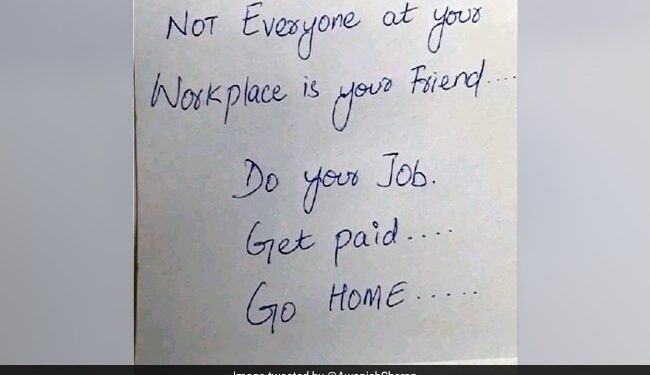 NOT Everyone at your
Workplace is your Friend....
Do your Job.
Get paid....
Go HOME.....
Image tweeted by @AwanishSharan